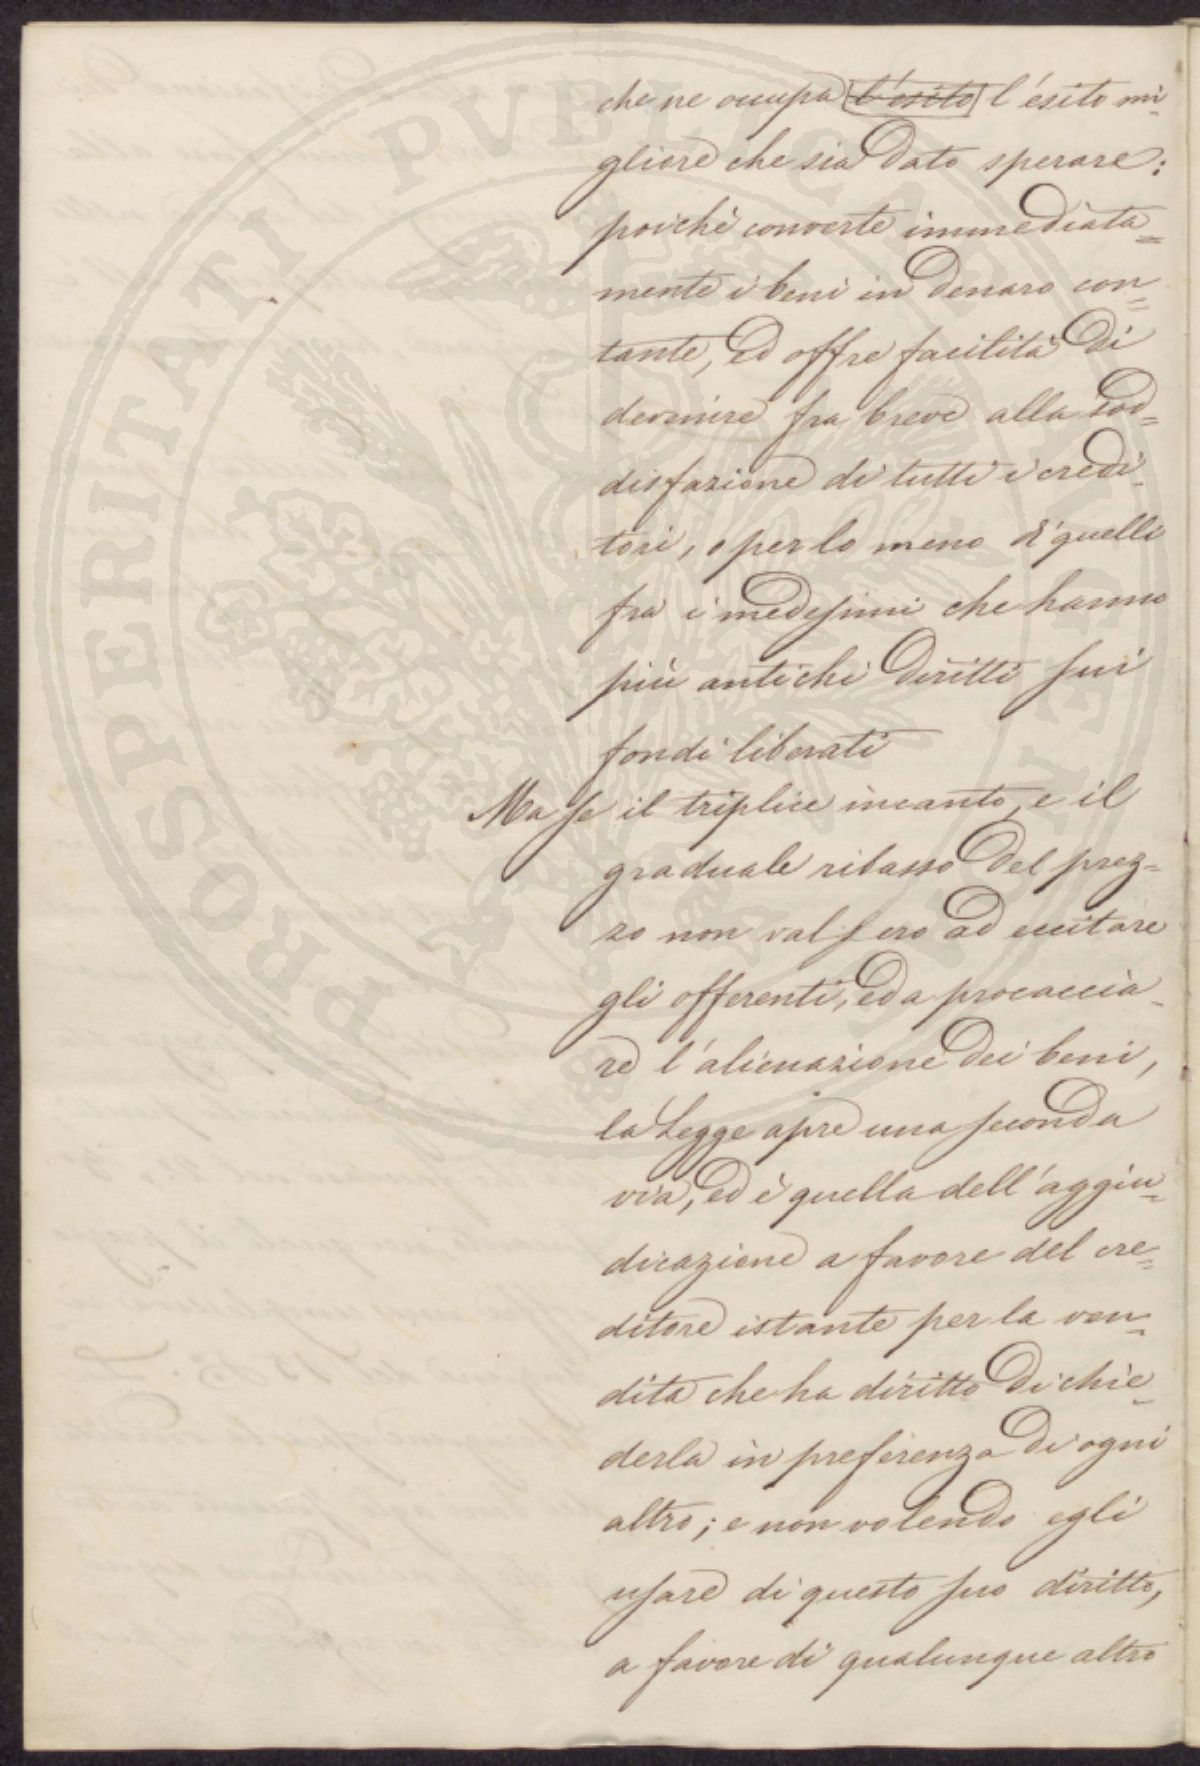 che ne occupa l'esito l'esito mi-
gliore che sia dato sperare;
poichè converte immediata=
mente i beni in denaro con=
tante, ed offre facilità di
devenire fra breve alla sod=
disfazione di tutti i credi-
tori, o per lo meno di quelli
fra i medesimi che hanno
più antichi diritti sui
fondi liberati
Ma se il triplice incanto, e il
graduale ribasso del prez=
zo non valsero ad eccitare
gli offerenti, ed a procaccia-
re l'alienazione dei beni,
la Legge apre una seconda
via, ed è quella dell'aggiu=
dicazione a favore del cre=
ditore istante per la ven=
dita che ha diritto di chie=
derla in preferenza di ogni
altro; e non volendo egli
usare di questo suo diritto,
a favore di qualunque altro
PROSPERITATI PVBLICAE